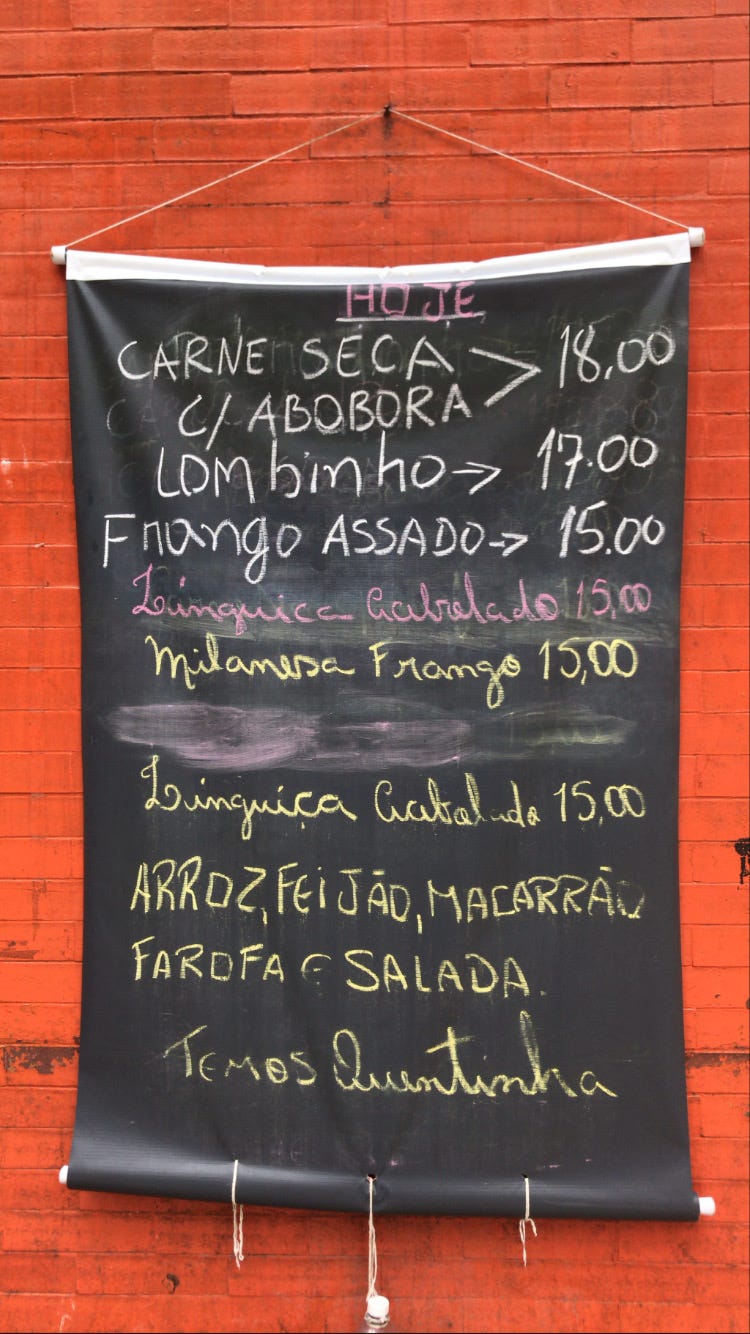 HOJE
CARNE SECA > 18,00
C/ ABOBORA
Lombinho → 17.00
Frango ASSADO → 15.00
Linguica Acebolado 15,00
Milanesa Frango 15,00
Linguiça Acebolado 15,00
ARROZ, FEIJÃO, MACARRÃO
FAROFA E SALADA.
Temos Quentinha